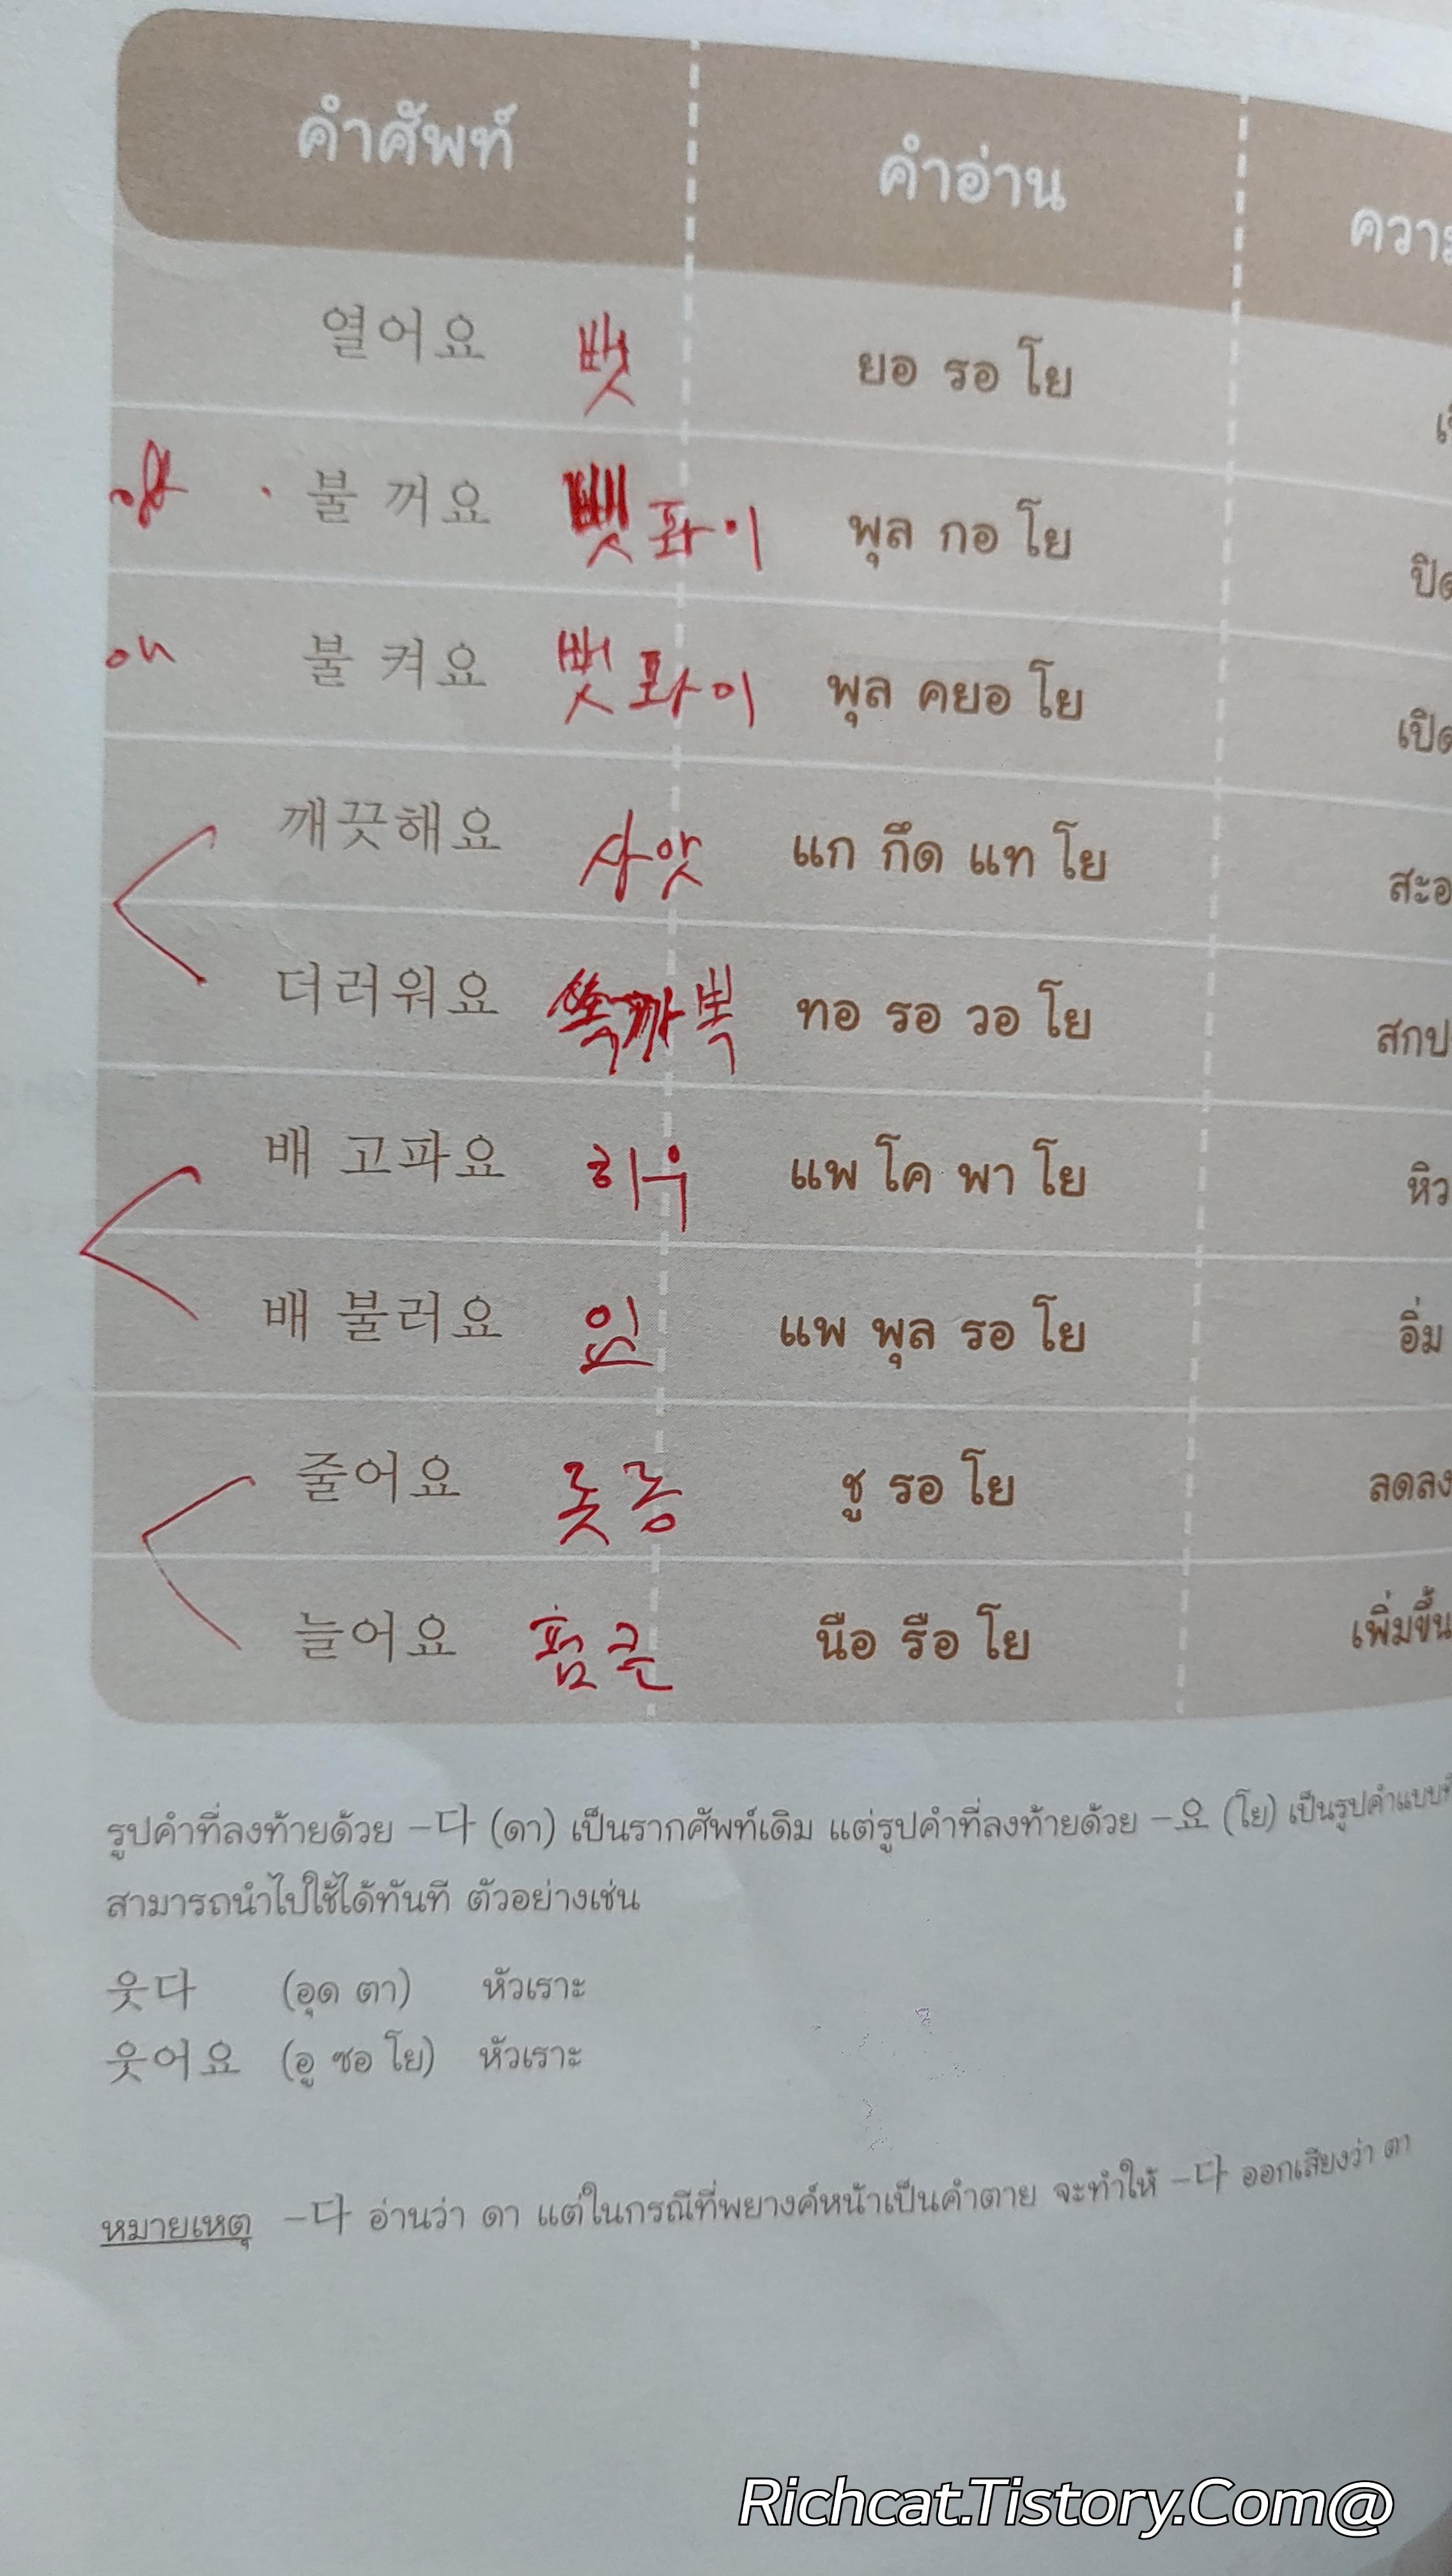 คำศัพท์ คำอ่าน
열어요 뻿 ยอ รอ โย
off 불 꺼요 뻿 퐈이 พุล กอ โย
on 불 켜요 뻿 퐈이 พุล คยอ โย
깨끗해요 사앗 แก กึด แท โย
더러워요 ทอ รอ วอ โย
배 고파요 히우 แพ โค พา โย หิว
배 불러요 임 แพ พุล รอ โย อิ่ม
줄어요 롯롱 ชู รอ โย ลดลง
늘어요 นือ รือ โย เพิ่มขึ้น
รูปคำที่ลงท้ายด้วย -다 (ดา) เป็นรากศัพท์เดิม แต่รูปคำที่ลงท้ายด้วย -요 (โย) เป็นรูปคำแบบ
สามารถนำไปใช้ได้ทันที ตัวอย่างเช่น
웃다 (อุด ตา) หัวเราะ
웃어요 (อู ซอ โย) หัวเราะ
หมายเหตุ -다 อ่านว่า ดา แต่ในกรณีที่พยางค์หน้าเป็นคำตาย จะทำให้ -다 ออกเสียงว่า ตา
Richcat.Tistory.Com@